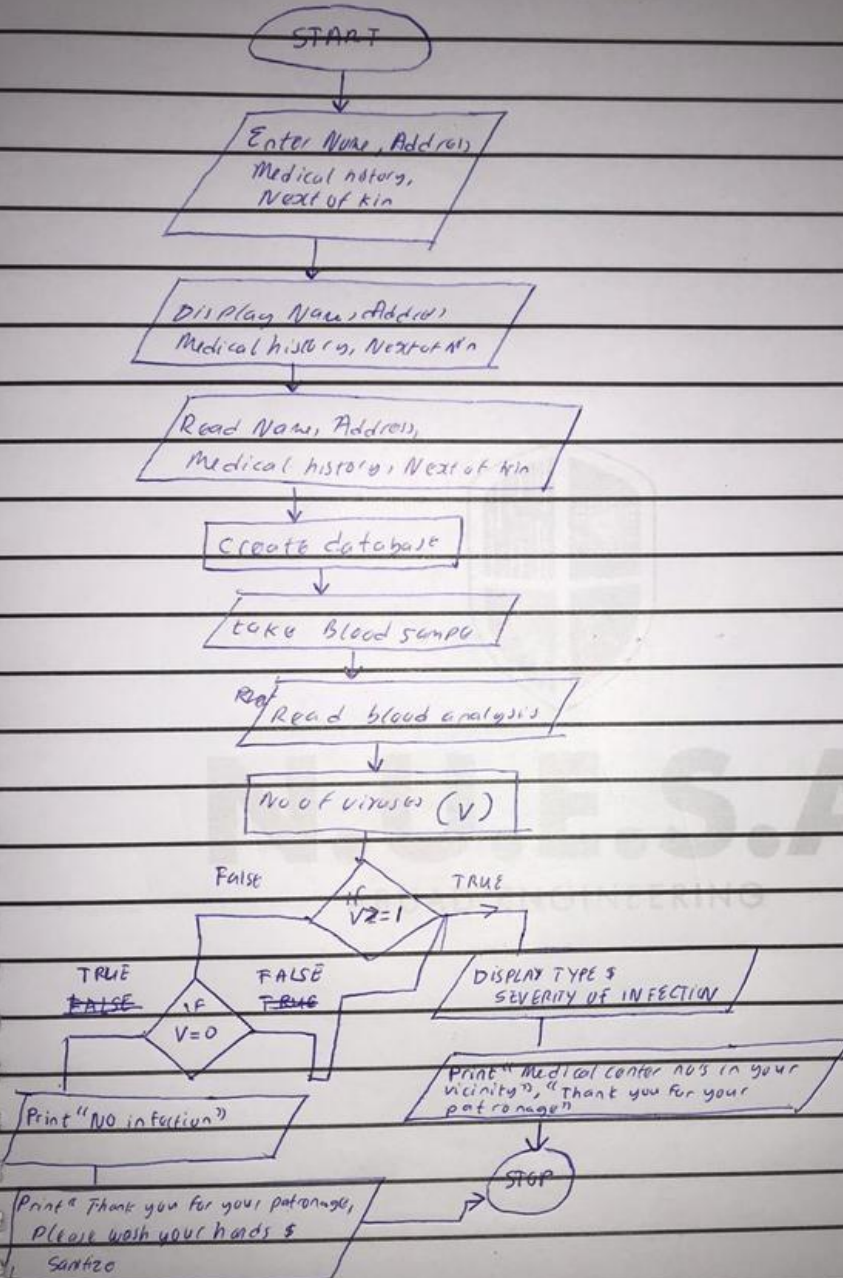 START
Enter Name, Address
Medical history,
Next of kin
Display Name, Address
Medical history, Next of kin
Read Name, Address,
Medical history, Next of kin
Create database
take Blood sample
Read blood analysis
No of viruses (V)
False
TRUE
if
V>=1
TRUE
FALSE
FALSE
TRUE
if
V=0
DISPLAY TYPE &
SEVERITY OF INFECTION
Print "Medical center no's in your
vicinity", "Thank you for your
patronage"
Print "NO infection"
STOP
Print "Thank you for your patronage,
Please wash your hands &
Sanitize
N.U.E.S.A
ENGINEERING